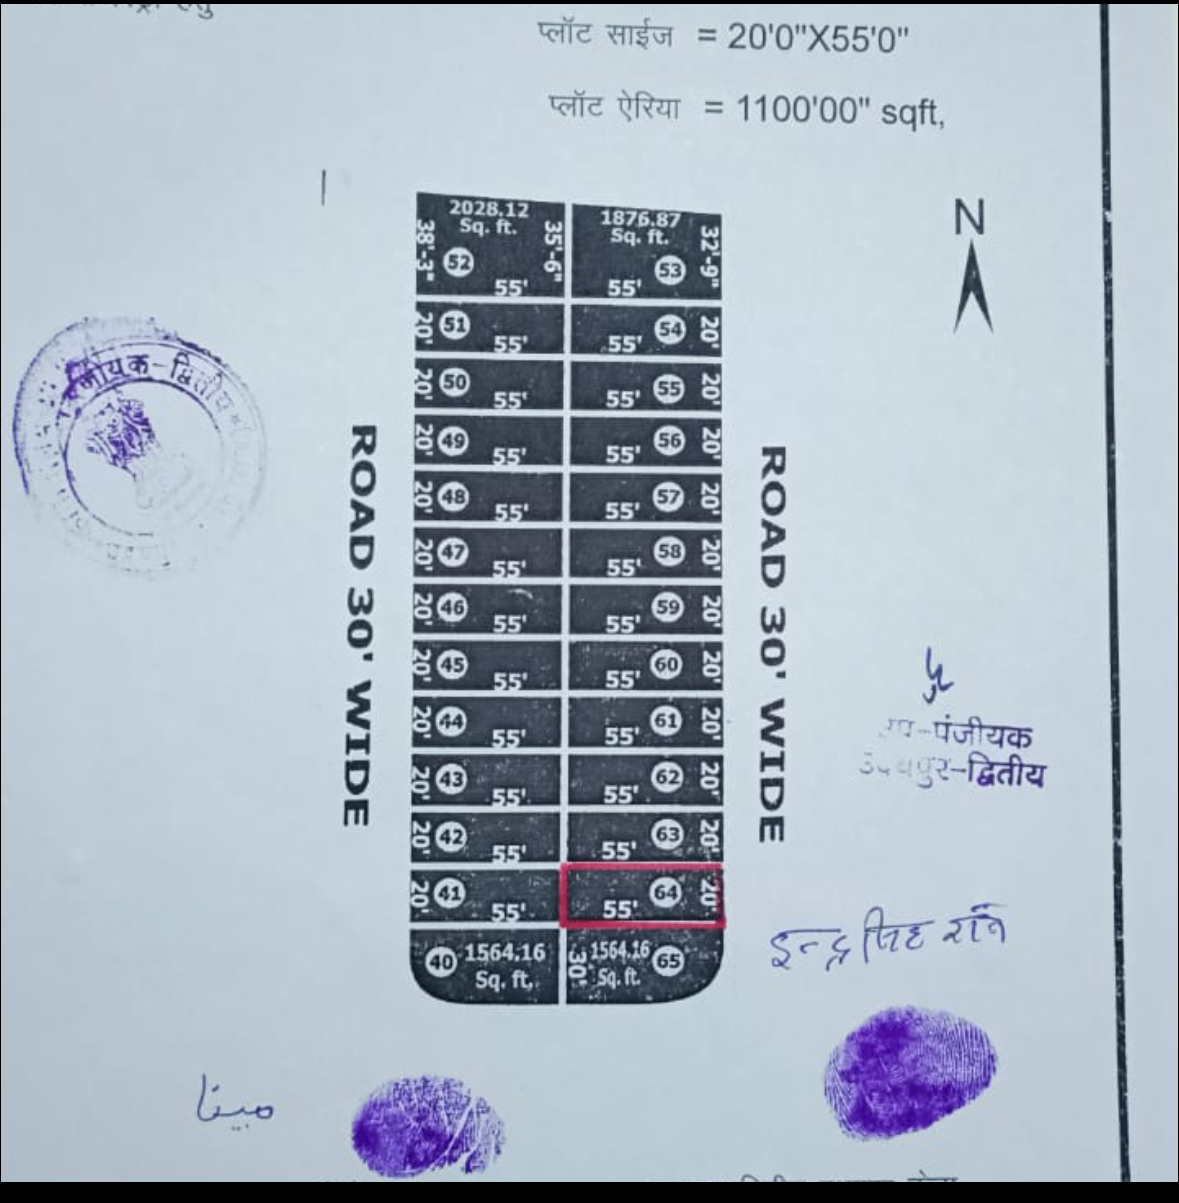 हेतु
प्लॉट साईज = 20'0"X55'0"
प्लॉट ऐरिया = 1100'00" sqft,
N
2028.12
Sq. ft.
38'-3"
35'-6"
52
55'
1876.87
Sq. ft.
32'-9"
53
55'
20' 51 55'
55' 54 20'
20' 50 55'
55' 55 20'
20' 49 55'
55' 56 20'
20' 48 55'
55' 57 20'
20' 47 55'
55' 58 20'
20' 46 55'
55' 59 20'
20' 45 55'
55' 60 20'
20' 44 55'
55' 61 20'
20' 43 55'
55' 62 20'
20' 42 55'
55' 63 20'
20' 41 55'
55' 64 20'
40 1564.16
Sq. ft.
30' 1564.16 65
Sq. ft.
ROAD 30' WIDE
ROAD 30' WIDE
पंजीयक-द्वितीय
उप-पंजीयक
उदयपुर-द्वितीय
مبينا